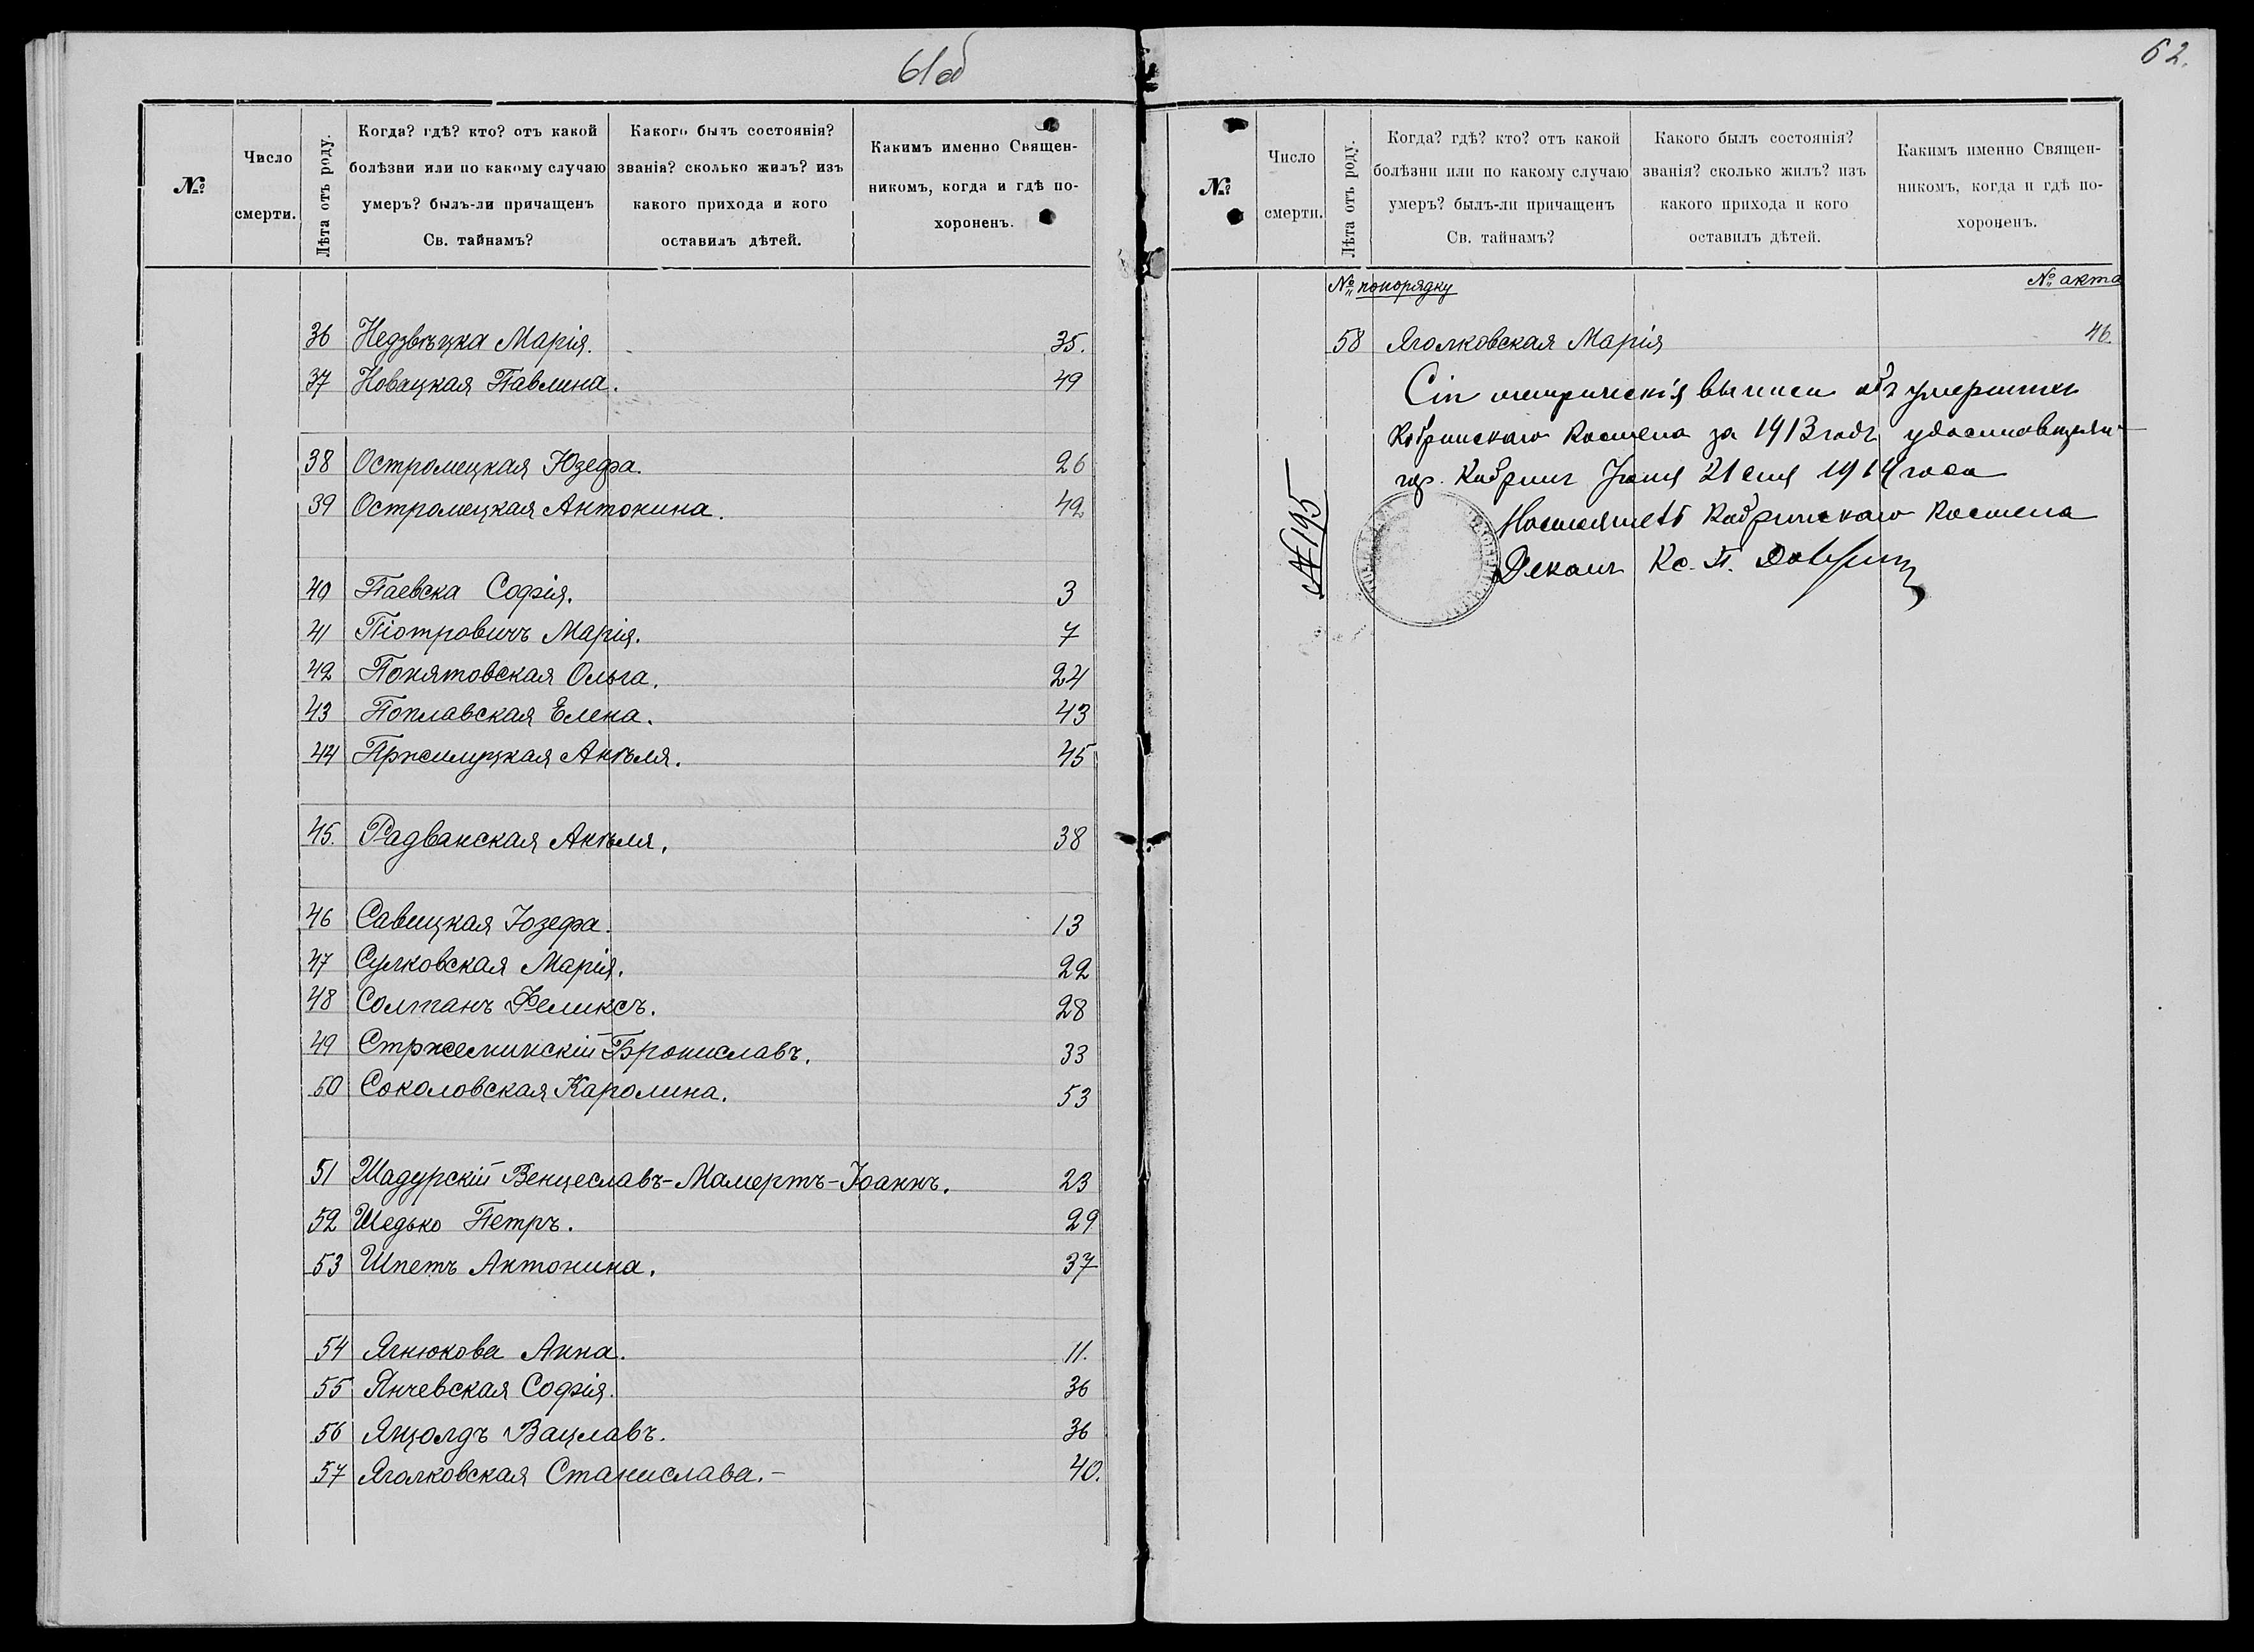 61об
№
Число
смерти.
Лѣта отъ роду.
Когда? гдѣ? кто? отъ какой
болѣзни или по какому случаю
умеръ? былъ-ли причащенъ
Св. тайнамъ?
Какого былъ состоянія?
званія? сколько жилъ? изъ
какого прихода и кого
оставилъ дѣтей.
Какимъ именно Священ-
никомъ, когда и гдѣ по-
хороненъ.
36 Недзвѣцка Марія. 35.
37 Новацкая Павлина. 49
38 Остромецкая Юзефа. 26
39 Остромецкая Антонина. 42
40 Паевска Софія. 3
41 Піотровичъ Марія. 7
42 Понятовская Ольга. 24
43 Поплавская Елена. 43
44 Пржилуцкая Анѣля. 45
45. Радванская Анѣля. 38
46 Савицкая Іозефа. 13
47 Сулковская Марія. 22
48 Солтанъ Феликсъ. 28
49 Стржеминскій Брониславъ. 33
50 Соколовская Каролина. 53
51 Шадурскій Венцеславъ-Мамертъ-Іоаннъ. 23
52 Шедько Петръ. 29
53 Шпетъ Антонина. 37
54 Ягнюкова Анна. 11.
55 Янчевская Софія. 36
56 Ящолдъ Вацлавъ. 36
57 Яголковская Станислава.- 40.
62.
№
Число
смерти.
Лѣта отъ роду.
Когда? гдѣ? кто? отъ какой
болѣзни или по какому случаю
умеръ? былъ-ли причащенъ
Св. тайнамъ?
Какого былъ состоянія?
званія? сколько жилъ? изъ
какого прихода и кого
оставилъ дѣтей.
Какимъ именно Священ-
никомъ, когда и гдѣ по-
хороненъ.
№ попорядку № акта
58 Яголковская Марія 46.
Сіи метрическія выписи объ умершихъ
Кобринскаго Костела за 1913 годъ
гор. Кобринъ 21 дня 1914 года
Настоятель Кобринскаго Костела
Деканъ Кс.
№ 195